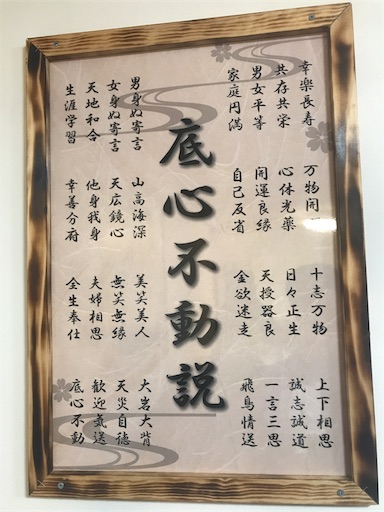 幸楽長寿
共存共栄
男女平等
家庭円満
万物開
心休光薬
開運良縁
自己反省
十志万物
日々正生
天授器良
金欲迷走
上下相思
誠志誠道
一言三思
飛鳥情送
底心不動説
男身ぬ寄言
女身ぬ寄言
天地和合
生涯学習
山高海深
天広鏡心
他身我身
幸善分府
美笑美人
無笑無縁
夫婦相思
全生奉仕
大岩大背
天災自徳
歓迎気送
底心不動